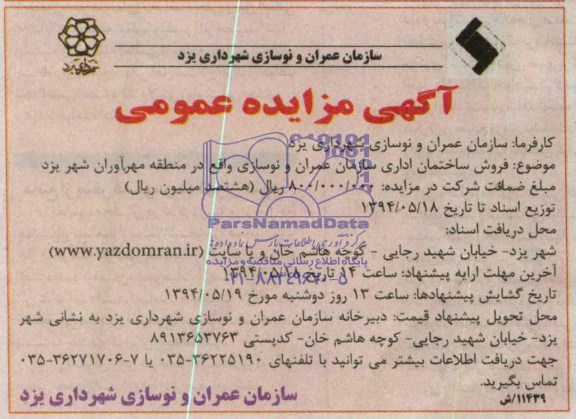 سازمان عمران و نوسازی شهرداری یزد
آگهی مزایده عمومی
کارفرما: سازمان عمران و نوسازی شهرداری یزد
موضوع: فروش ساختمان اداری سازمان عمران و نوسازی واقع در منطقه مهرآوران شهر یزد
مبلغ ضمانت شرکت در مزایده: ۸۰۰/۰۰۰/۰۰۰ ریال (هشتصد میلیون ریال)
توزیع اسناد تا تاریخ ۱۳۹۴/۰۵/۱۸
ParsNamadData
محل دریافت اسناد:
شهر یزد- خیابان شهید رجایی - کوچه هاشم خان و یا سایت (www.yazdomran.ir)
پایگاه اطلاع رسانی مناقصه و مزایده
آخرین مهلت ارایه پیشنهاد: ساعت ۱۴ تاریخ ۱۳۹۴/۰۵/۱۸
۰۲۱-۸۸۳۴۹۶۷۰-۵
تاریخ گشایش پیشنهادها: ساعت ۱۳ روز دوشنبه مورخ ۱۳۹۴/۰۵/۱۹
محل تحویل پیشنهاد قیمت: دبیرخانه سازمان عمران و نوسازی شهرداری یزد به نشانی شهر
یزد- خیابان شهید رجایی- کوچه هاشم خان- کدپستی ۸۹۱۳۶۵۳۷۶۳
جهت دریافت اطلاعات بیشتر می توانید با تلفنهای ۰۳۵-۳۶۲۲۵۱۹۰ یا ۷-۰۳۵-۳۶۲۷۱۷۰۶
تماس بگیرید.
۱۱۴۳۹/ش
سازمان عمران و نوسازی شهرداری یزد